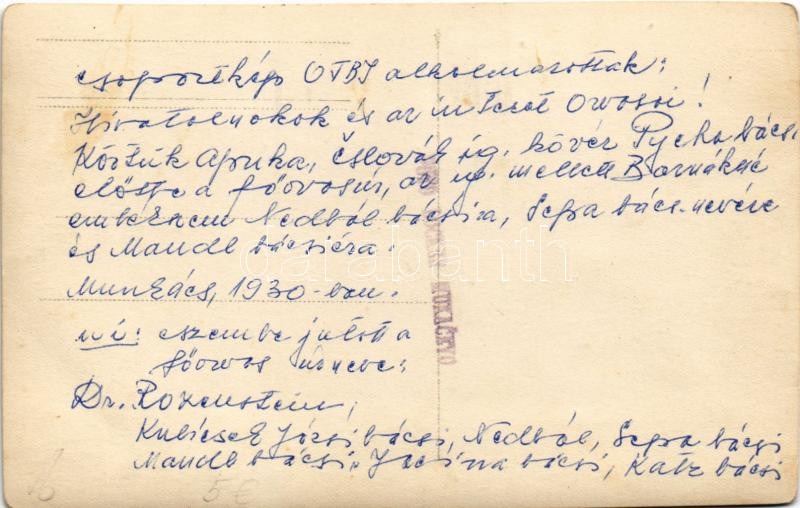 csoportkép OTBI alkalmazottak:
Hivatalnokok és az intézet Orvosai!
Köztük Apuka, Čslovák ig. kövér Pycha bácsi
előtte a főorvosúr, az ig. mellett Barnákné
emlékszem Nedbál bácsira, Sepra bácsi nevére
és Mandl bácsiéra.
Munkács, 1930-ban.
ui: eszembe jutott a
főorvos úr neve:
Dr. Rozenstein,
Kubicsek Józsi bácsi, Nedbál, Sepra bácsi
Mandl bácsi, bácsi, Katz bácsi
MUKAČEVO
darabanth
5 €